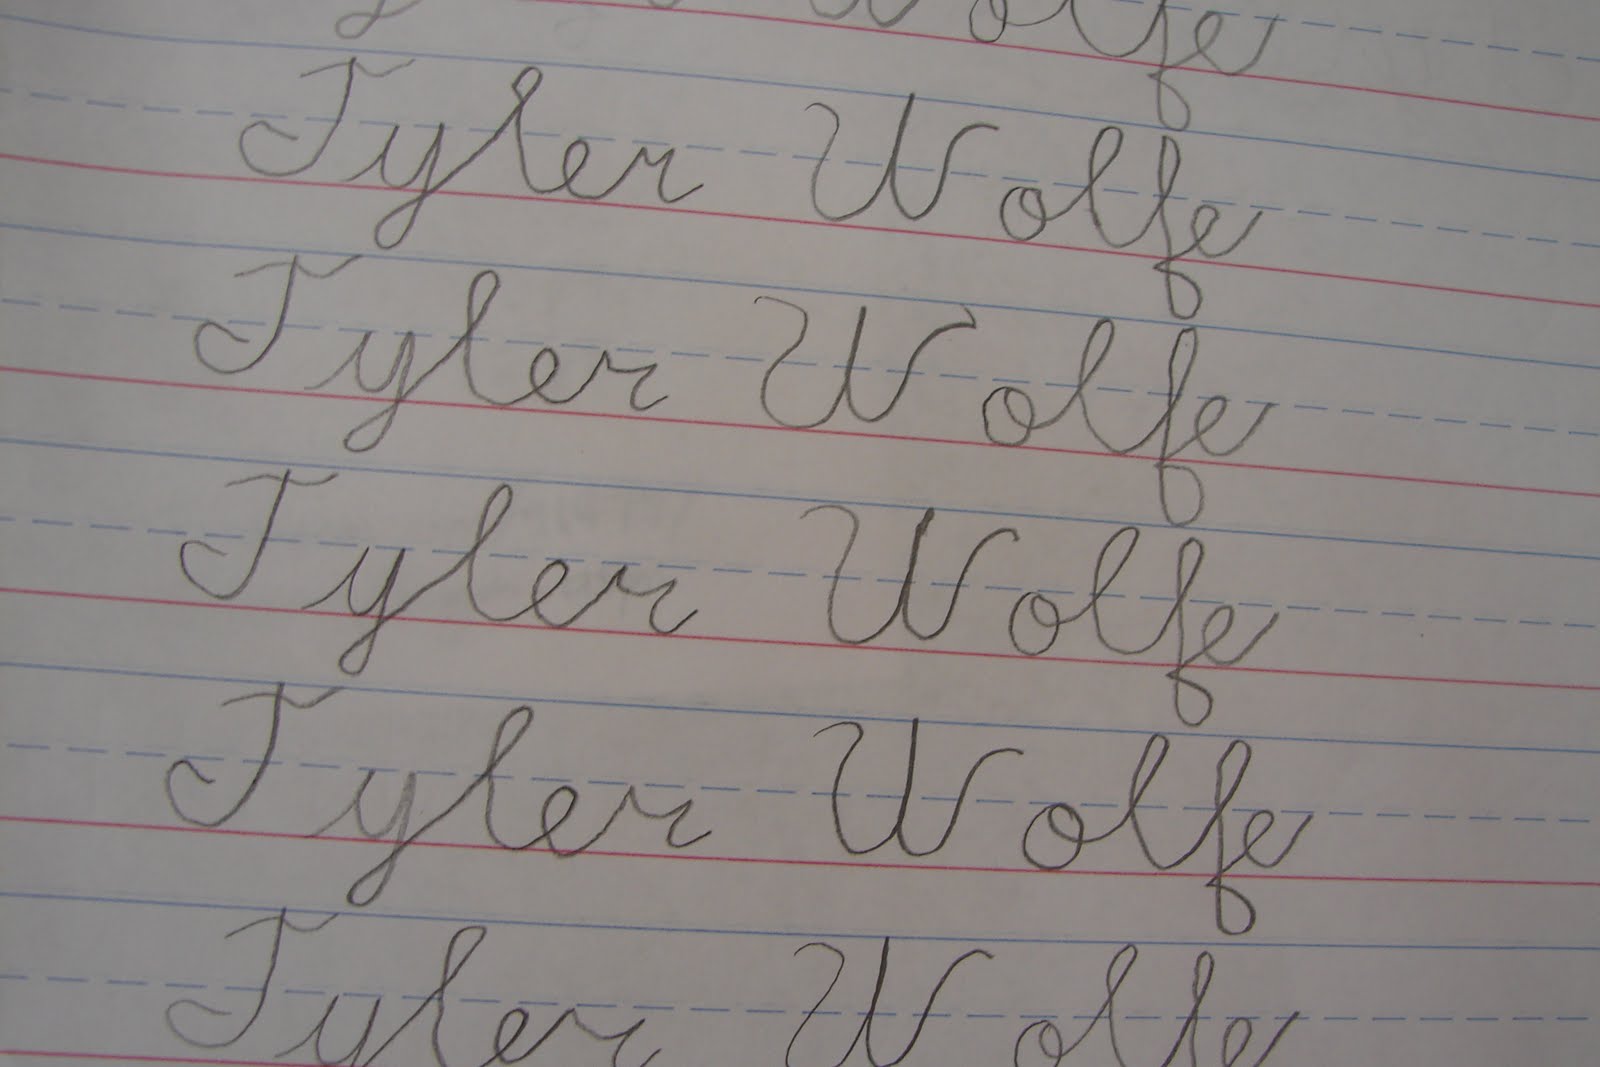 Wolfe
Tyler Wolfe
Tyler Wolfe
Tyler Wolfe
Tyler Wolfe
Tyler Wolfe